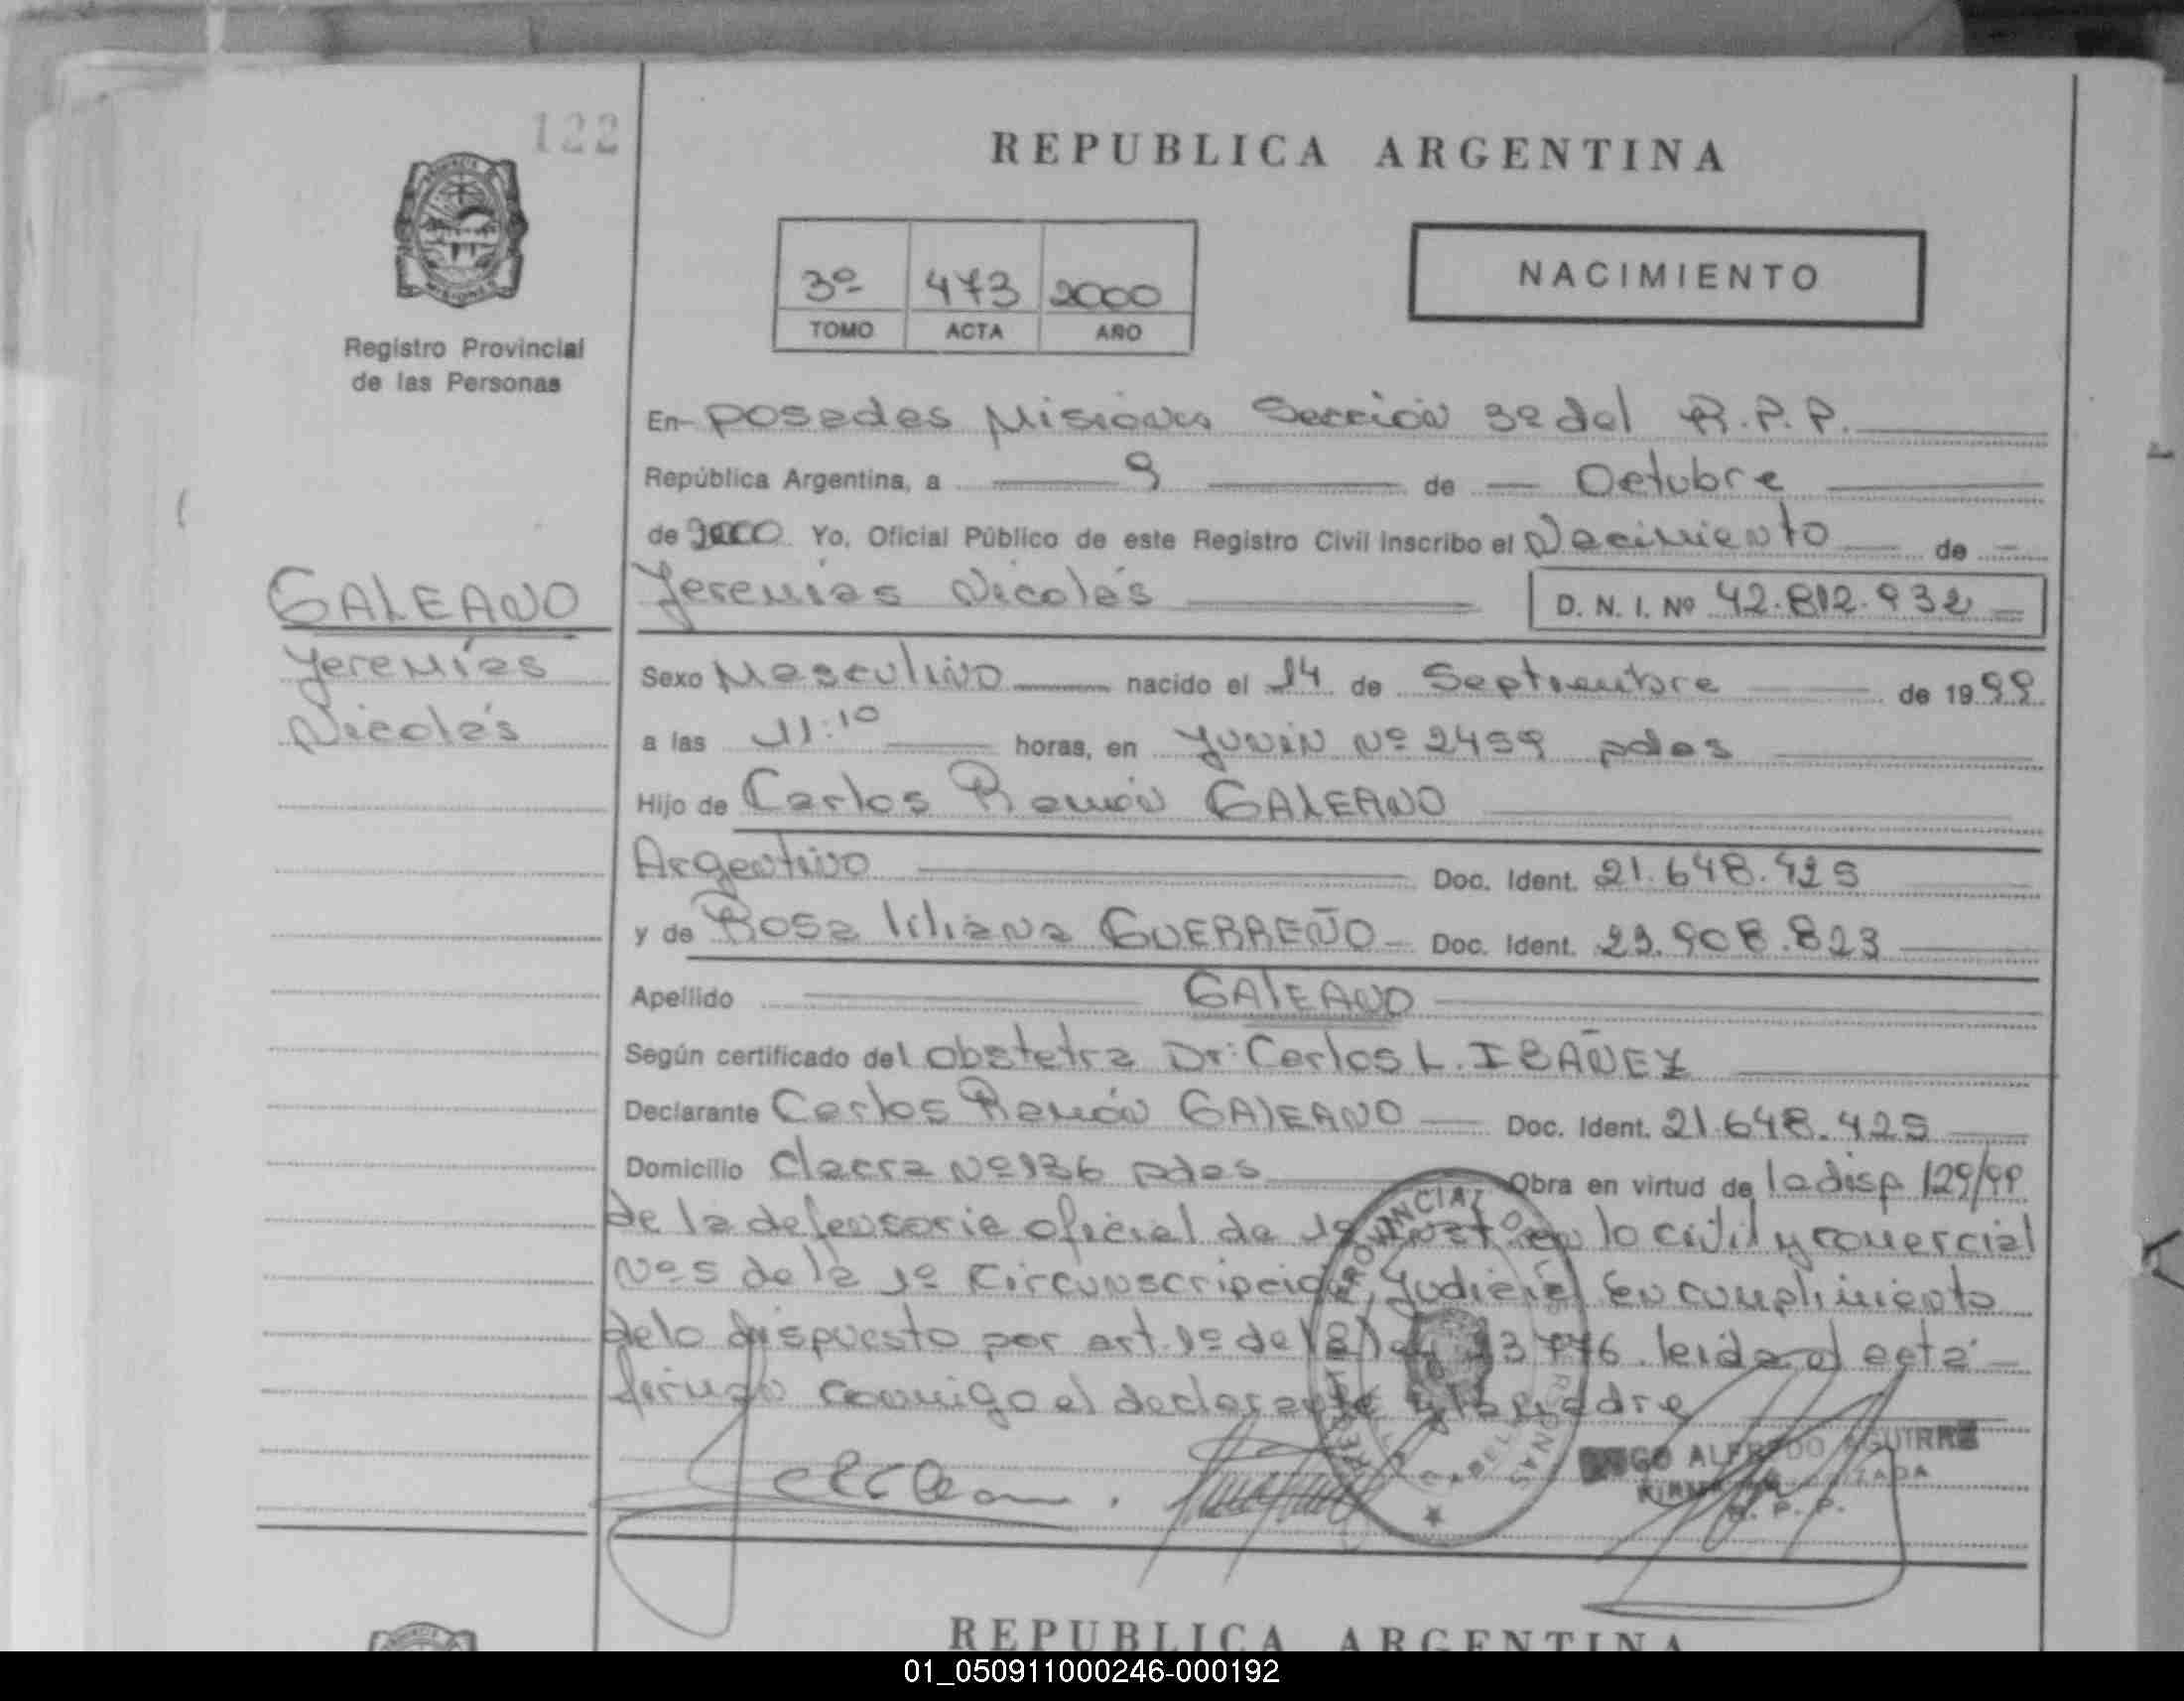 122
REPUBLICA ARGENTINA
3º 473 2000
TOMO ACTA AÑO
NACIMIENTO
Registro Provincial
de las Personas
En Posadas Misiones Sección 3ª del R.P.P.
República Argentina, a 9 de Octubre
de 2000 Yo, Oficial Público de este Registro Civil Inscribo el Nacimiento de
GALEANO
Jeremías
Nicolás
Jeremías Nicolás D. N. I. Nº 42.812.932
Sexo Masculino nacido el 14 de Septiembre de 1999
a las 11:10 horas, en Junín Nº 2459 pdas
Hijo de Carlos Ramón GALEANO
Argentino Doc. Ident. 21.648.425
y de Rosa liliana GUERREÑO Doc. Ident. 23.908.823
Apellido GALEANO
Según certificado del Obstetra Dr: Carlos L. IBAÑEZ
Declarante Carlos Ramón GALEANO Doc. Ident. 21.648.425
Domicilio Chacra Nº 136 pdas Obra en virtud de la disp 129/99
de la defensoria oficial de 1ª Inst en lo civil y comercial
Nº 5 de la 1ª Circunscripción Judicial En cumplimiento
delo dispuesto por art. 1º de la ley leida el acta
firman conmigo el declarante y la madre
ALFREDO AGUIRRE
R. P. P.
REPUBLICA ARGENTINA
01_050911000246-000192